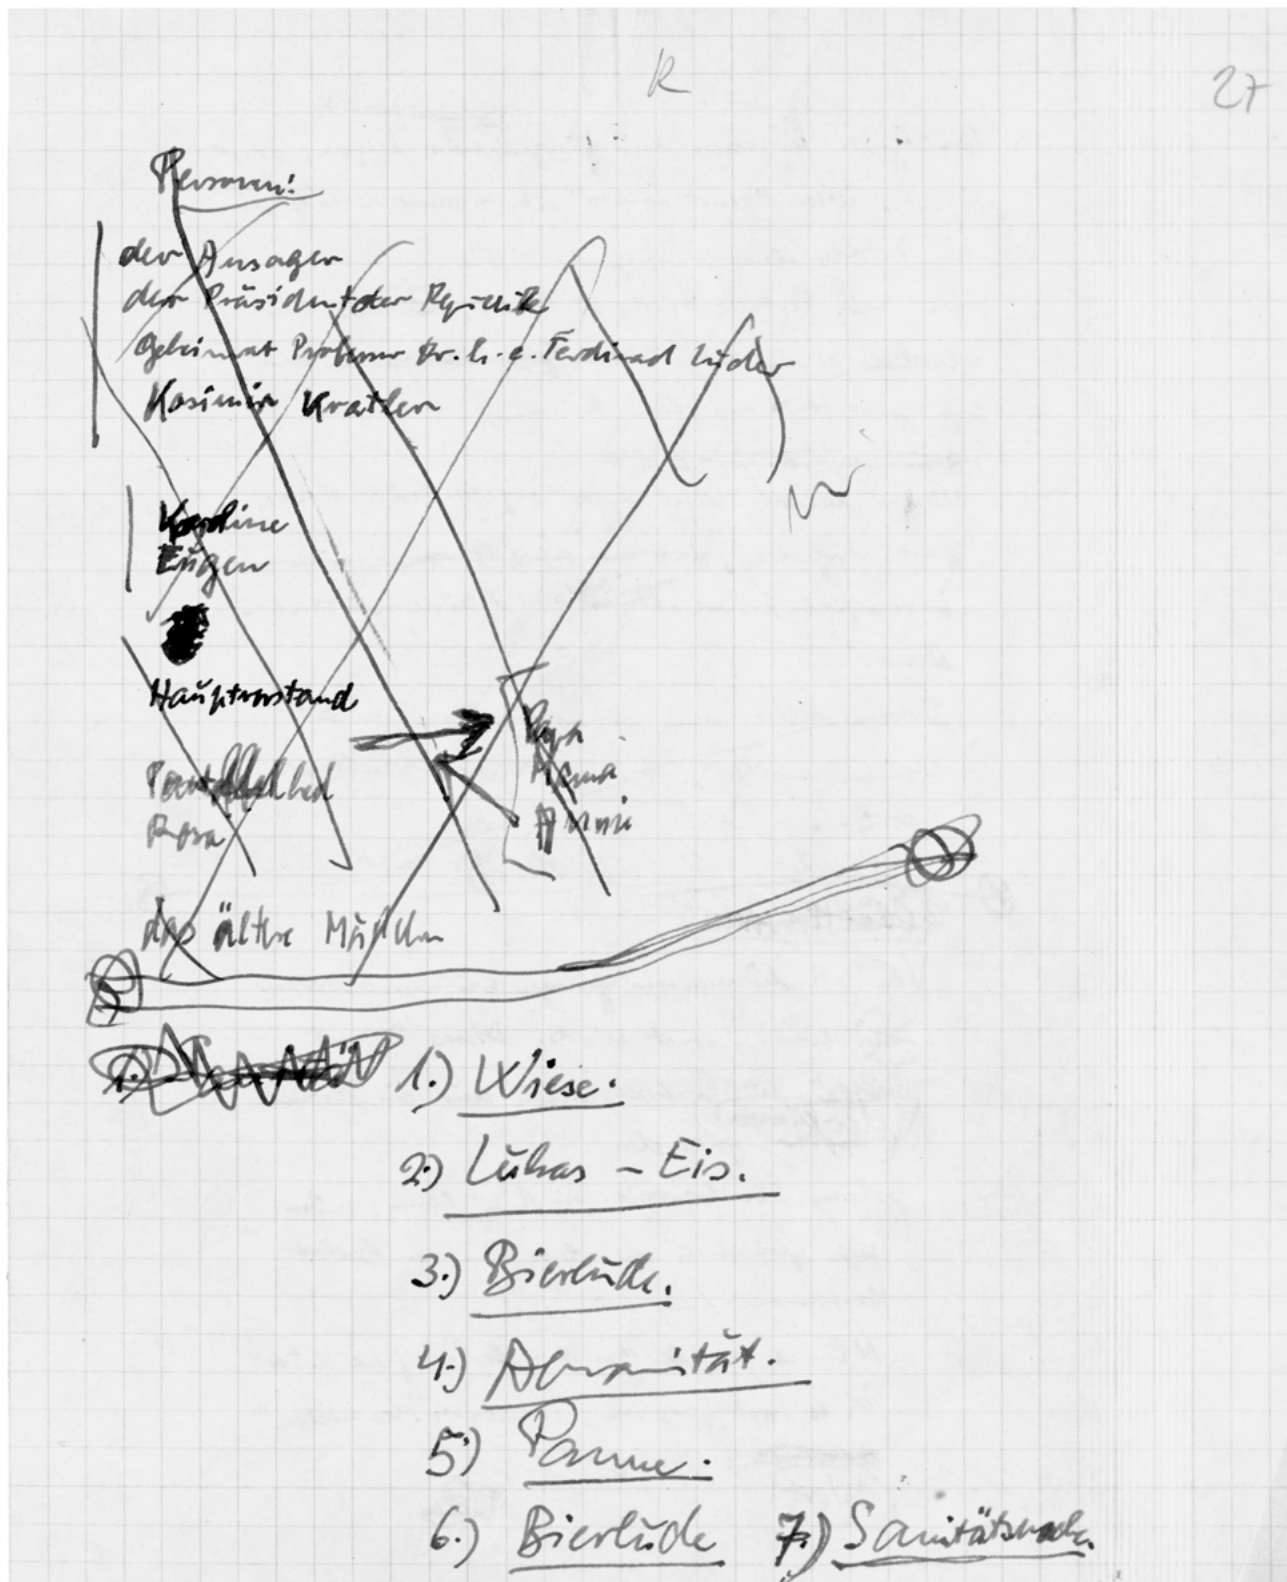 R
27
Personen:
der Ansager
der Präsident der Republik
Geheimrat Professor Dr. h. c. Ferdinand Lüder
Kasimir Kratler
Karoline
Eugen
Hauptvorstand
Papa
Mama
Annie
Rosa
das ältere Mädchen
1.)
1.) Wiese.
2.) Lukas – Eis.
3.) Bierbude.
4.) Abnormität.
5.) Panne.
6.) Bierbude 7.) Sanitätswache.